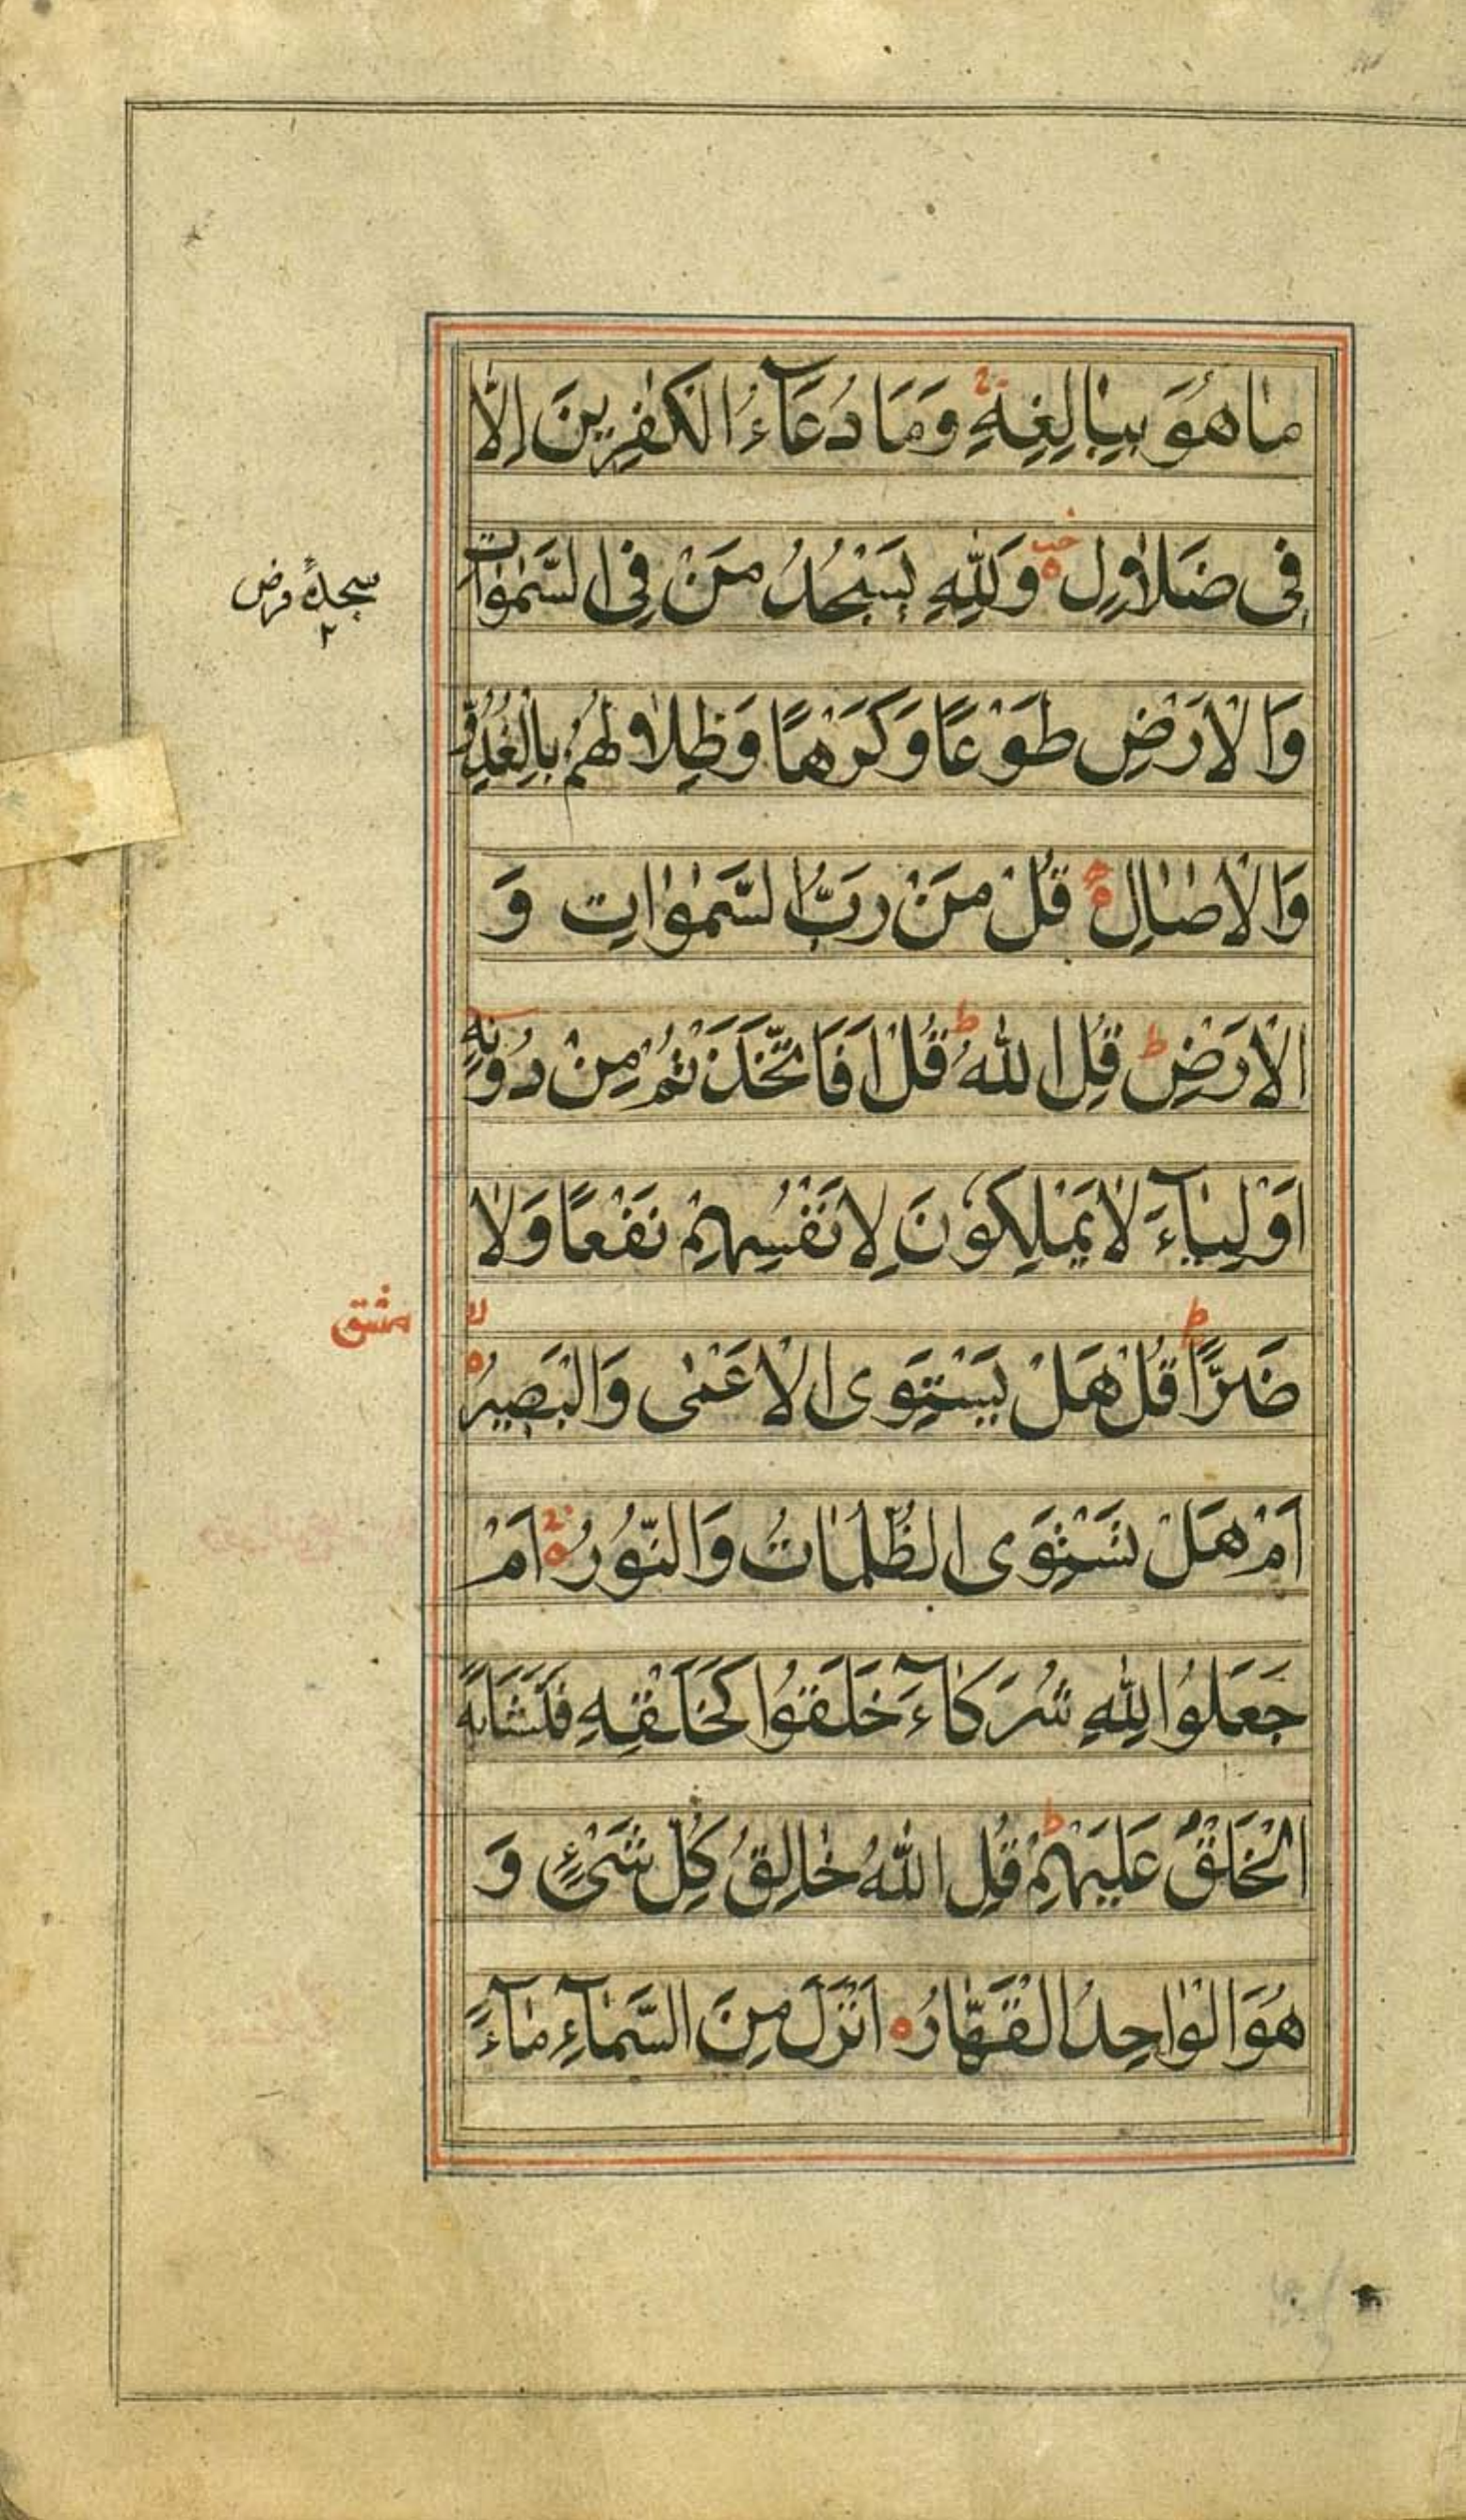 مٰا هُوَ بِبٰالِغِهِ وَمَا دُعَآءُ الْكٰفِرِينَ اِلّٰا
فِى ضَلاٰلٍ وَلِلّٰهِ يَسْجُدُ مَنْ فِى السَّمٰوٰاتِ
سجدهٔ فرض
۲
وَالْاَرْضِ طَوْعًا وَكَرْهًا وَظِلاٰلُهُمْ بِالْغُدُوِّ
وَالْاٰصٰالِ قُلْ مَنْ رَبُّ السَّمٰوٰاتِ وَ
الْاَرْضِ ط قُلِ اللّٰهُ ط قُلْ اَفَاتَّخَذْتُمْ مِنْ دُونِهِ
اَوْلِيٰآءَ لاٰ يَمْلِكُونَ لِاَنْفُسِهِمْ نَفْعًا وَلاٰ
ضَرًّا ط قُلْ هَلْ يَسْتَوِى الْاَعْمٰى وَالْبَصِيرُ
اَمْ هَلْ تَسْتَوِى الظُّلُمٰاتُ وَالنُّورُ اَمْ
جَعَلُوا لِلّٰهِ شُرَكٰآءَ خَلَقُوا كَخَلْقِهِ فَتَشَابَهَ
الْخَلْقُ عَلَيْهِمْ ط قُلِ اللّٰهُ خٰالِقُ كُلِّ شَىْءٍ وَ
هُوَ الْوٰاحِدُ الْقَهّٰارُ اَنْزَلَ مِنَ السَّمٰآءِ مٰآءً